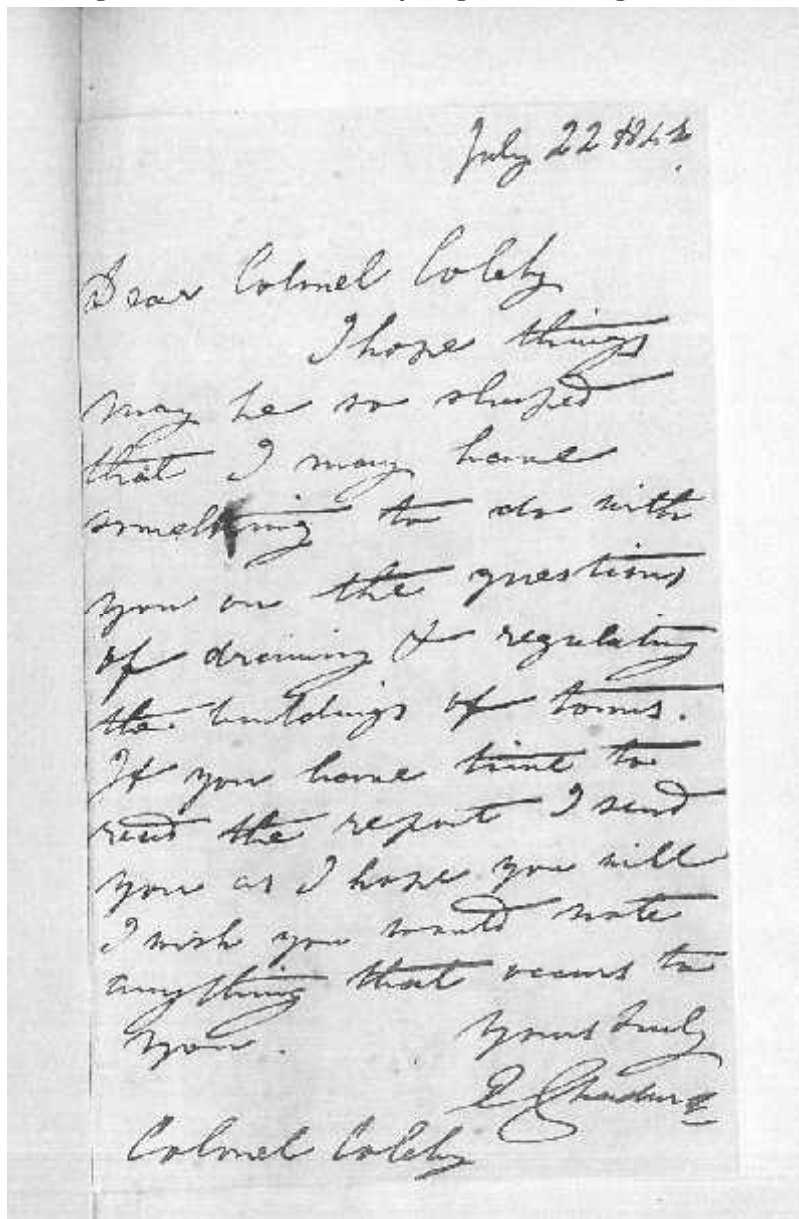 July 22 1842
Dear Colonel Colby
I hope things
may be so shaped
that I may have
something to do with
you on the questions
of draining & regulating
the buildings of towns.
If you have time to
read the report I send
you as I hope you will
I wish you would note
anything that occurs to
you. Yours truly
E Chadwick
Colonel Colby